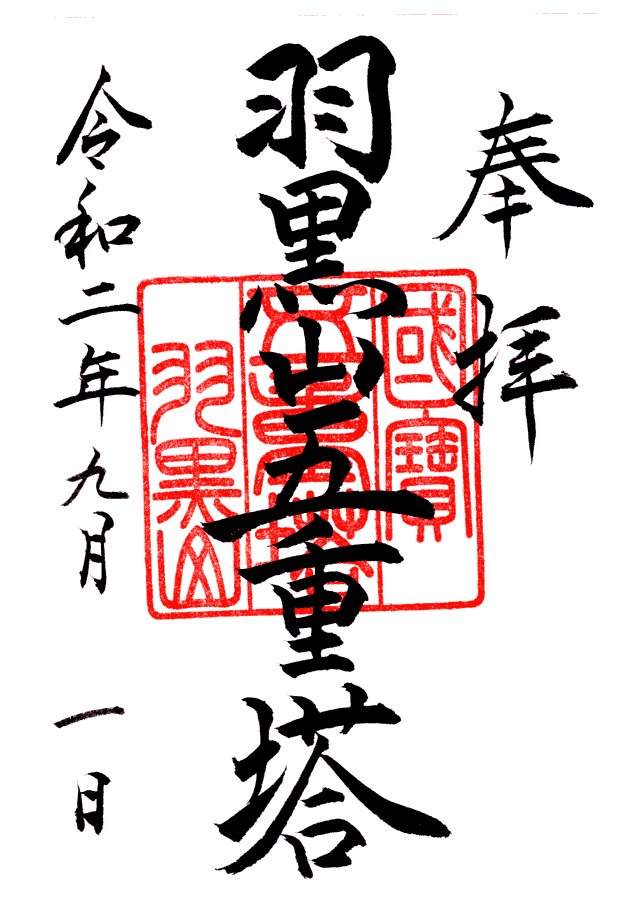 奉拝
羽黒山五重塔
令和二年九月一日
國寶
五重塔
羽黒山